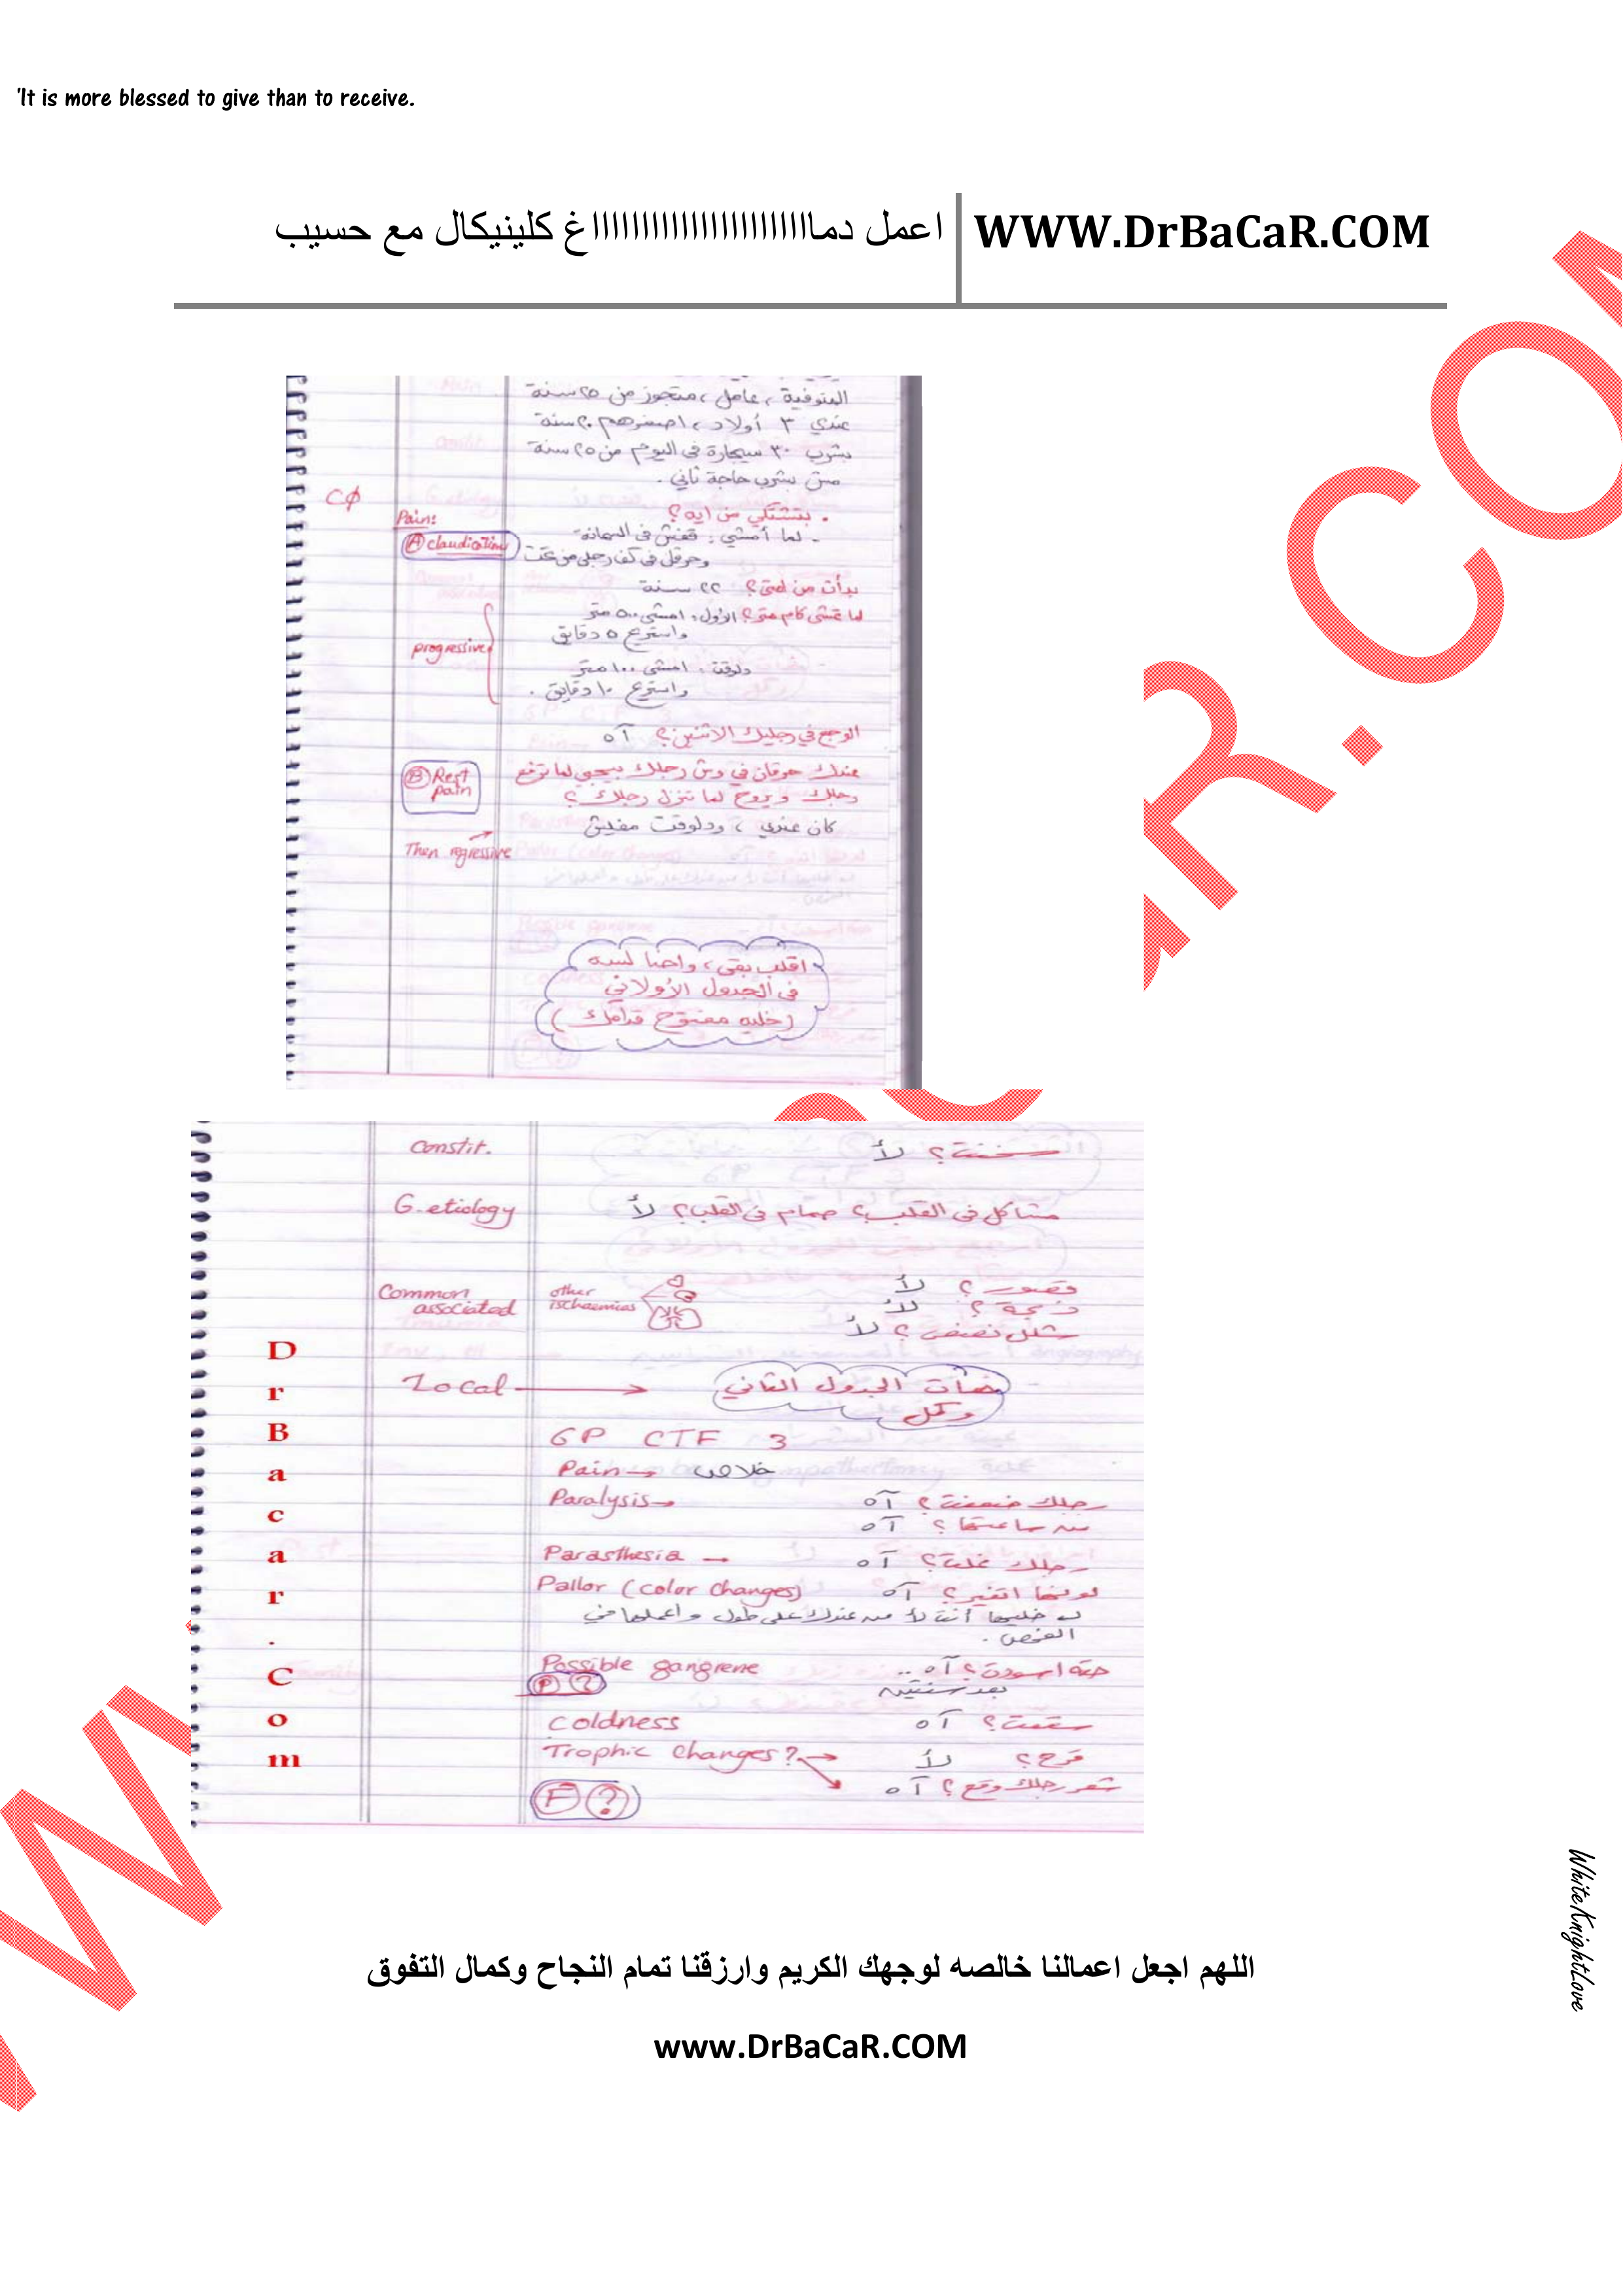 'It is more blessed to give than to receive.
اعمل دمااااااااااااااااااااااغ كلينيكال مع حسيب
WWW.DrBaCaR.COM
المنوفية، عامل، متجوز من ٢٥ سنة
عندي ٣ أولاد، اصغرهم ٢٠ سنة
بشرب ٣٠ سيجارة في اليوم من ٢٥ سنة
مش بشرب حاجة تاني.
بتشتكي من ايه؟
Pain:
- لما أمشي: قفش في السمانة
(A) claudication
وحرقان في كف رجلي من تحت
بدأت من امتى؟ ٢٢ سنة
لما تمشي كام متر؟ الأول: امشي ٥٠٠ متر
واستريح ٥ دقايق
progressive
دلوقت: امشي ١٠٠ متر
واستريح ١٠ دقايق.
الوجع في رجليك الاتنين؟ آه
(B) Rest pain
عندك حرقان في وش رجلك بيجي لما ترفع
رجلك ويروح لما تنزل رجلك؟
كان عندي، ودلوقت مفيش
Then regressive
اقلب بقى، واحنا لسه
في الجدول الأولاني
(خليه مفتوح قدامك)
Constit.
سخنت؟ لأ
G. etiology
مشاكل في القلب؟ صمام في القلب؟ لأ
Common associated
other ischaemias
قصور؟ لأ
ذبحة؟ لأ
شلل نصفي؟ لأ
Local
هات الجدول التاني
وكمل
6P CTF 3
Pain → خلاص
Paralysis → رجلك ضعفت؟ آه
من ساعتها؟ آه
Parasthesia → رجلك نملت؟ آه
Pallor (color changes) لونها اتغير؟ آه
خليها أنت لأ من عندك على طول واعملها في
الفحص.
Possible gangrene حتة اسودت؟ آه..
P ? بعد سنتين
Coldness سقعت؟ آه
Trophic changes? → قرح؟ لأ
شعر رجلك وقع؟ آه
F ?
D
r
B
a
c
a
r
.
C
o
m
WhiteKnightLove
اللهم اجعل اعمالنا خالصه لوجهك الكريم وارزقنا تمام النجاح وكمال التفوق
www.DrBaCaR.COM